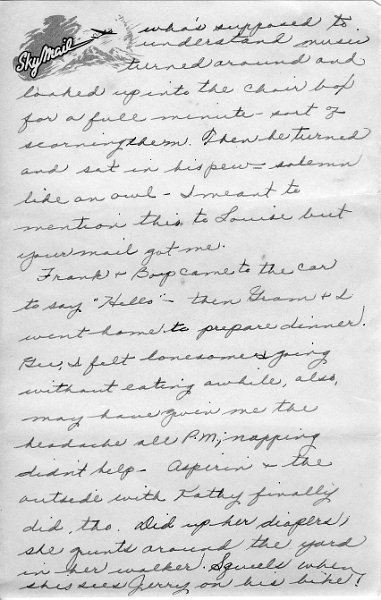 Sky Mail
who's supposed to
understand music
turned around and
looked up into the choir box
for a full minute - sort of
scorning them. Then he turned
and sat in his pew - solemn
like an owl - I meant to
mention this to Louise but
your mail got me.
Frank + Boop came to the car
to say "Hello" - then Gram + I
went home to prepare dinner.
Gee, I felt lonesome + going
without eating awhile, also,
may have given me the
headache all P.M; napping
didn't help - Aspirin + the
outside with Kathy finally
did, tho. Did up her diapers;
she grunts around the yard
in her walker. Squeels when
she sees Jerry on his bike!